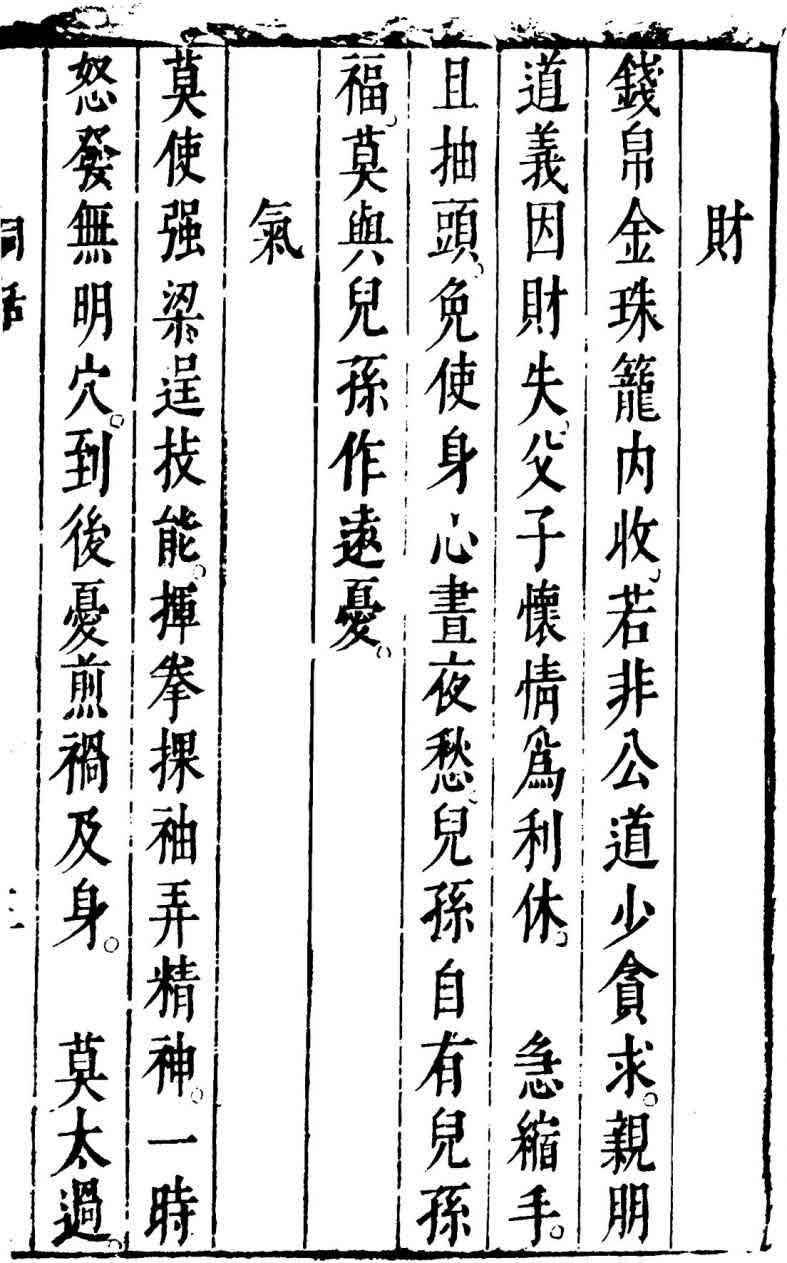 財
錢帛金珠籠内收若非公道少貪求。親朋
道義因財失父子懷情爲利休。急縮手。
且抽頭。免使身心晝夜愁。兒孫自有兒孫
福。莫與兒孫作遠憂。
氣
莫使强梁逞技能。揮拳捰袖弄精神。一時
怒發無明穴。到後憂煎禍及身。莫太過。
詞話